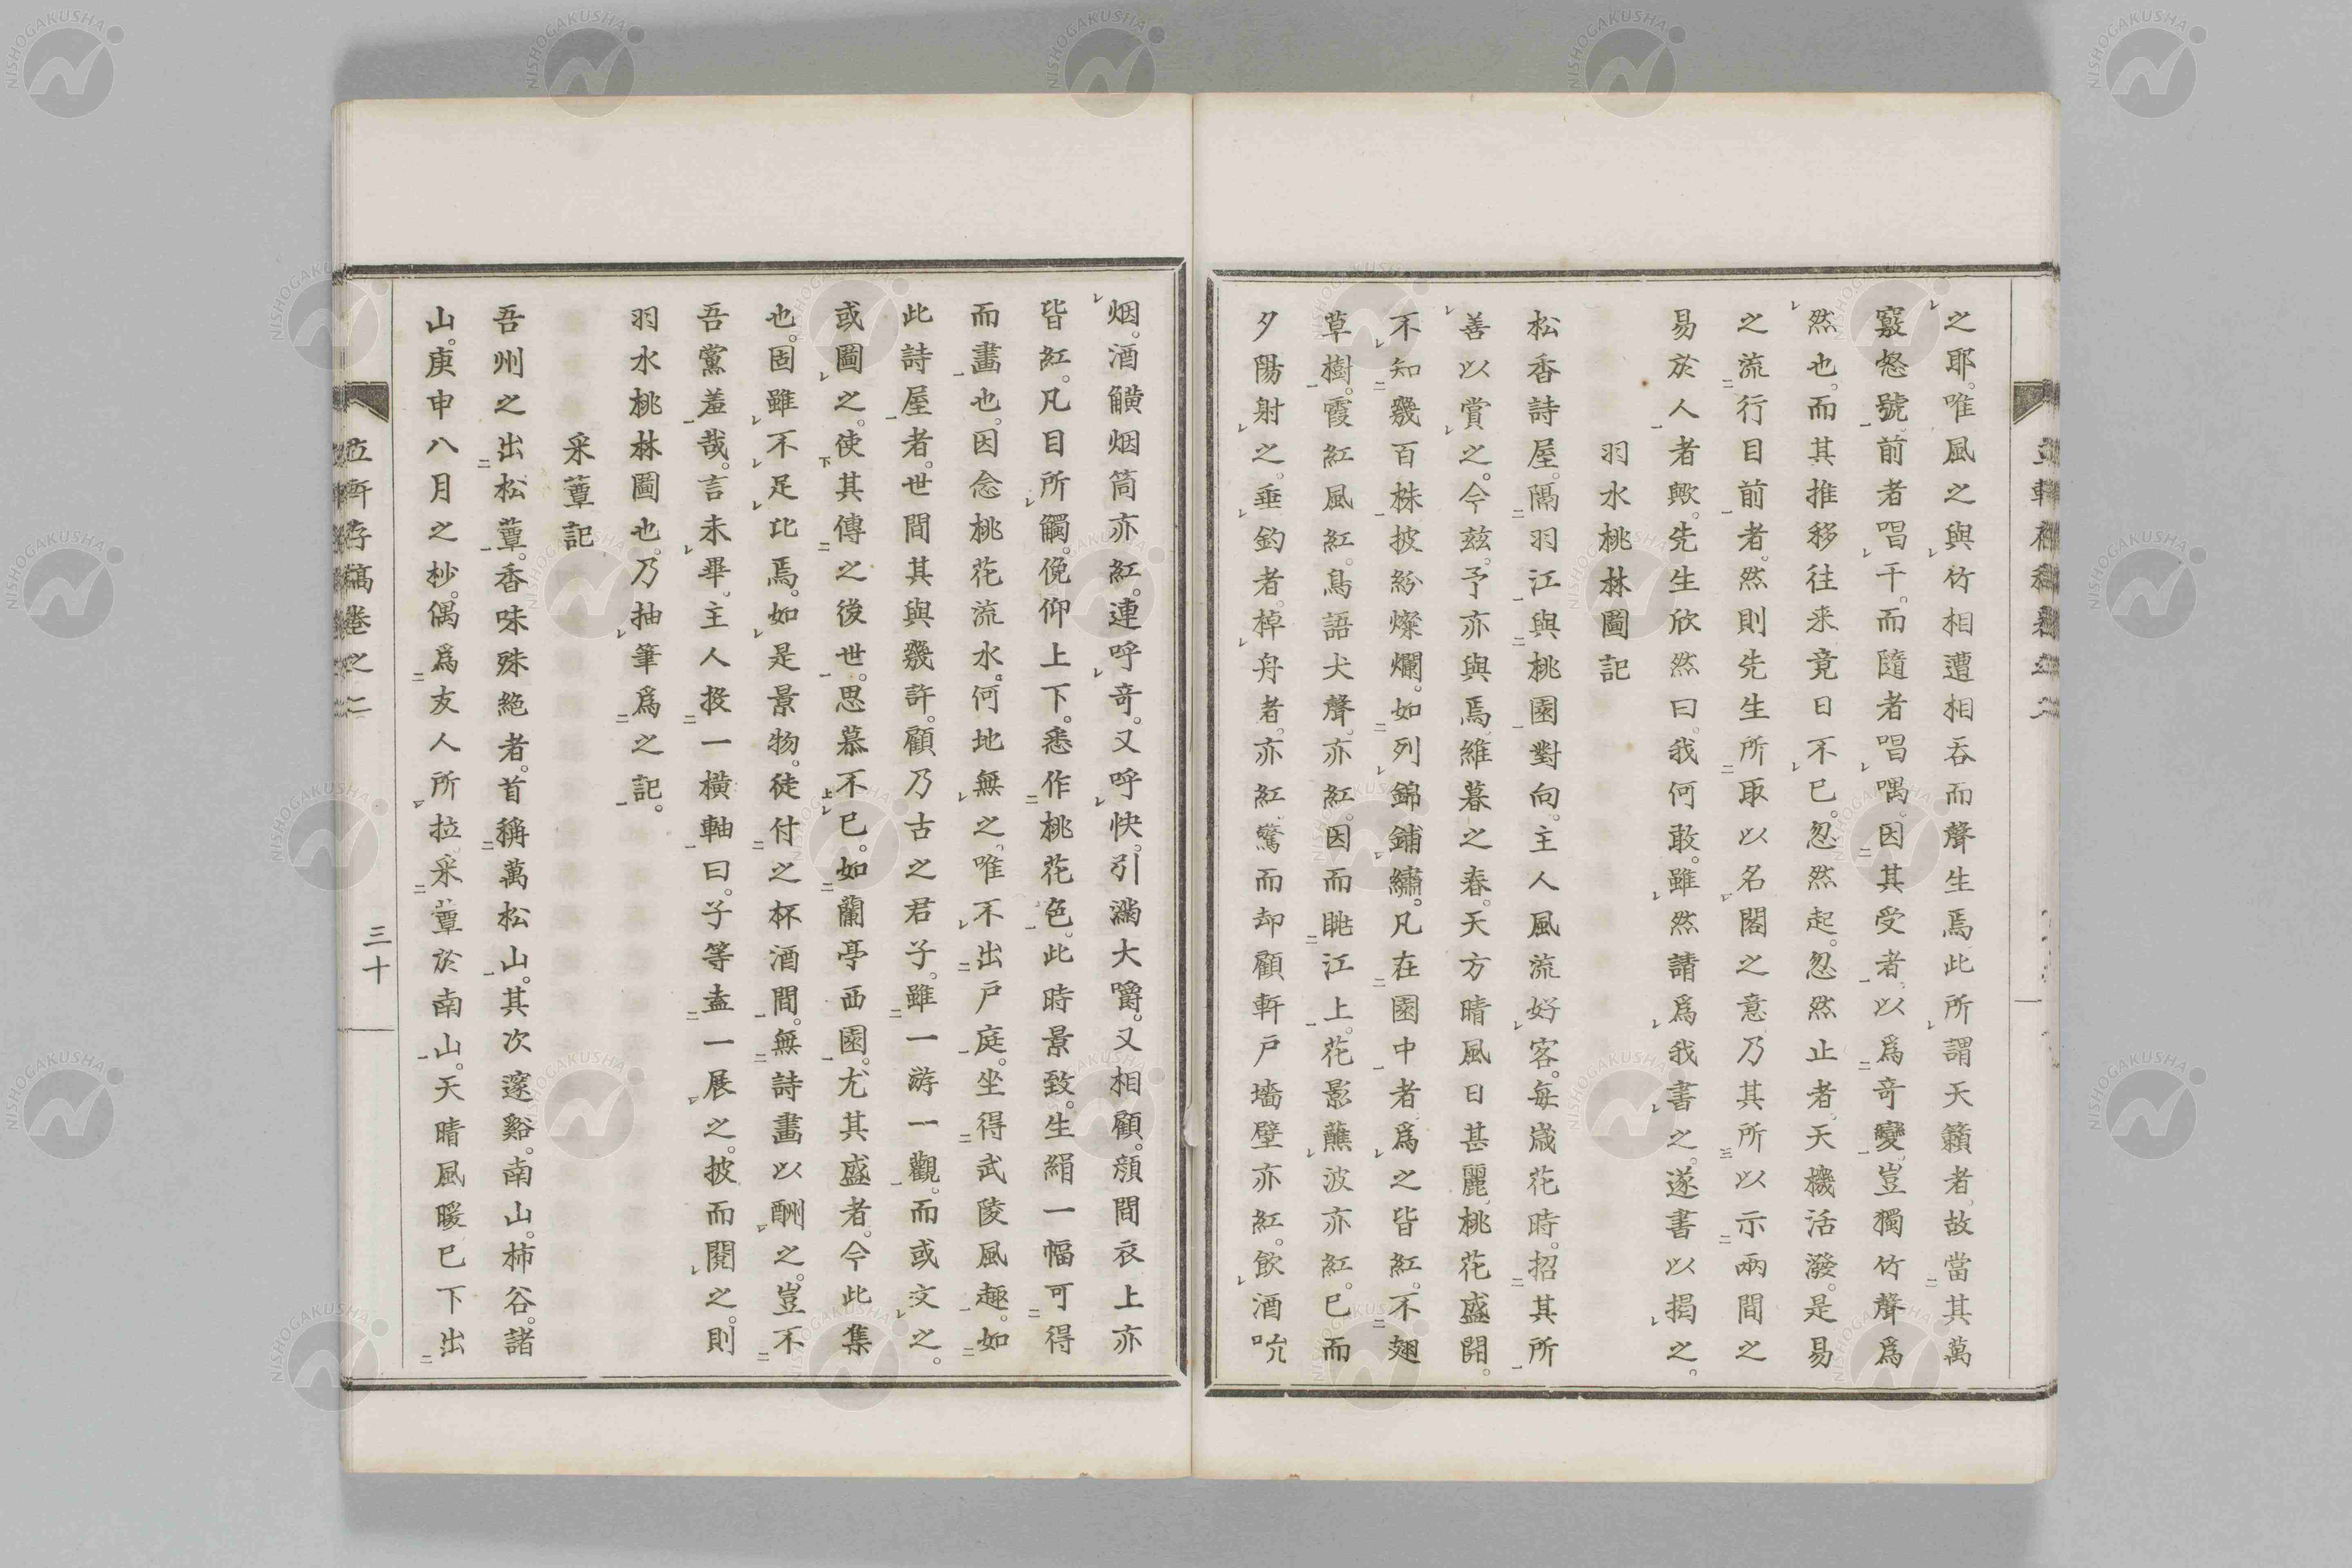 之耶。唯風之與竹相遭相呑而聲生焉此所謂天籟者。故當其萬
竅怒號。前者唱干。而隨者唱喁。因其受者。以爲竒變。豈獨竹聲爲
然也。而其推移往来竟日不已。忽然起。忽然止者。天機活潑。是易
之流行目前者。然則先生所取以名閣之意乃其所以示兩間之
易於人者歟。先生欣然曰。我何敢。雖然請爲我書之。遂書以揭之。
羽水桃林圖記
松香詩屋。隔羽江與桃園對向。主人風流好客。每歲花時。招其所
善以賞之。今茲。予亦與焉。維暮之春。天方晴風日甚麗。桃花盛開。
不知幾百株披紛燦爛。如列錦鋪繡。凡在園中者爲之皆紅。不翅
草樹。霞紅風紅。鳥語犬聲。亦紅。因而眺江上。花影蘸波亦紅。已而
夕陽射之。垂釣者。棹舟者。亦紅。驚而却顧軒戶墻壁亦紅。飲酒吮
烟。酒觥烟筒亦紅。連呼竒。又呼快。引滿大嚼。又相顧。顏間衣上亦
皆紅。凡目所觸。俛仰上下。悉作桃花色。此時景致。生絹一幅可得
而畫也。因念桃花流水。何地無之。唯不出戶庭。坐得武陵風趣。如
此詩屋者。世間其與幾許。顧乃古之君子。雖一游一觀。而或文之。
或圖之。使其傳之後世。思慕不已。如蘭亭西園。尤其盛者。今此集
也。固雖不足比焉。如是景物。徒付之杯酒間。無詩畫以酬之。豈不
吾黨羞哉。言未畢。主人投一橫軸曰。子等盍一展之。披而閱之。則
羽水桃林圖也。乃抽筆爲之記。
采蕈記
吾州之出松蕈。香味殊絶者。首稱萬松山。其次邃谿。南山。柿谷。諸
山。庚申八月之杪。偶爲友人所拉采蕈於南山。天晴風暖已下出
軒存稿卷之二
三十